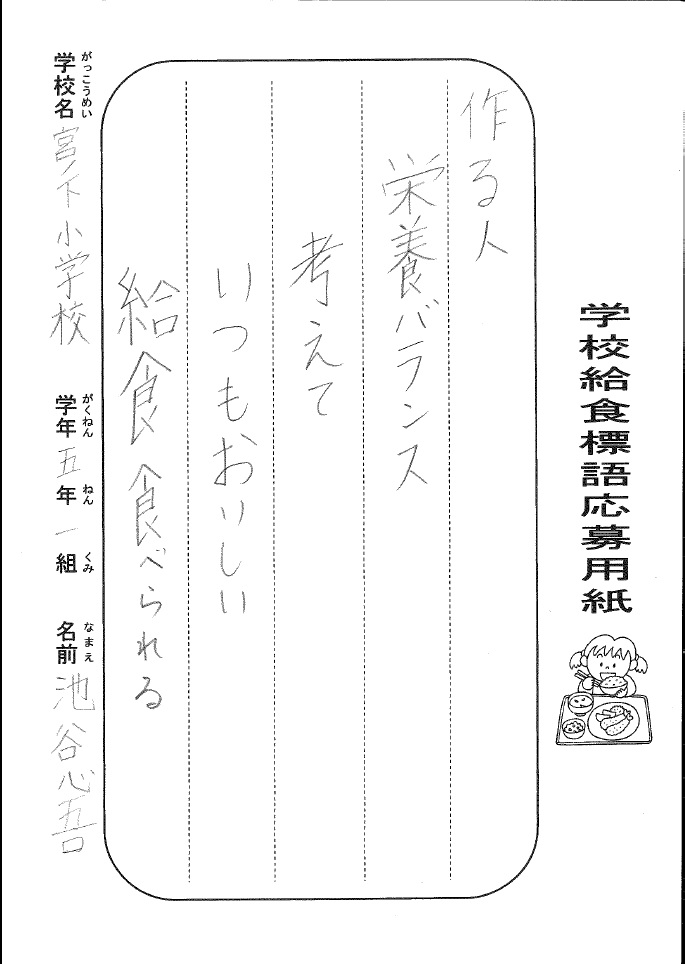 学校給食標語応募用紙
作る人
栄養バランス
考えて
いつもおいしい
給食食べられる
がっこうめい がくねん ねん くみ なまえ
学校名 宮ノ下小学校 学年 五年 一組 名前 池谷心吾